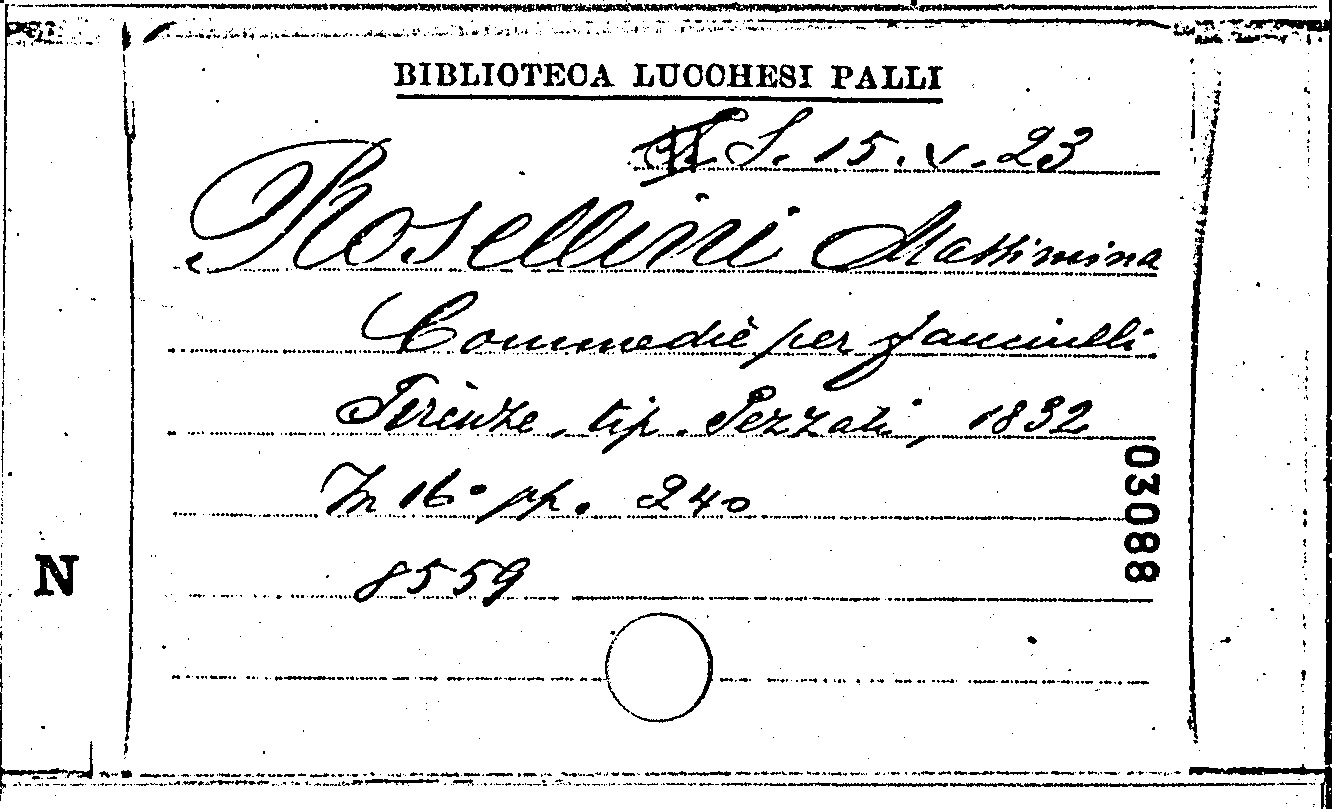 BIBLIOTECA LUCCHESI PALLI
S. 15. V. 23
Rosellini Massimina
Commedie per fanciulli.
Firenze, tip. Pezzati, 1832
In 16° pp. 240
03088
8559
N